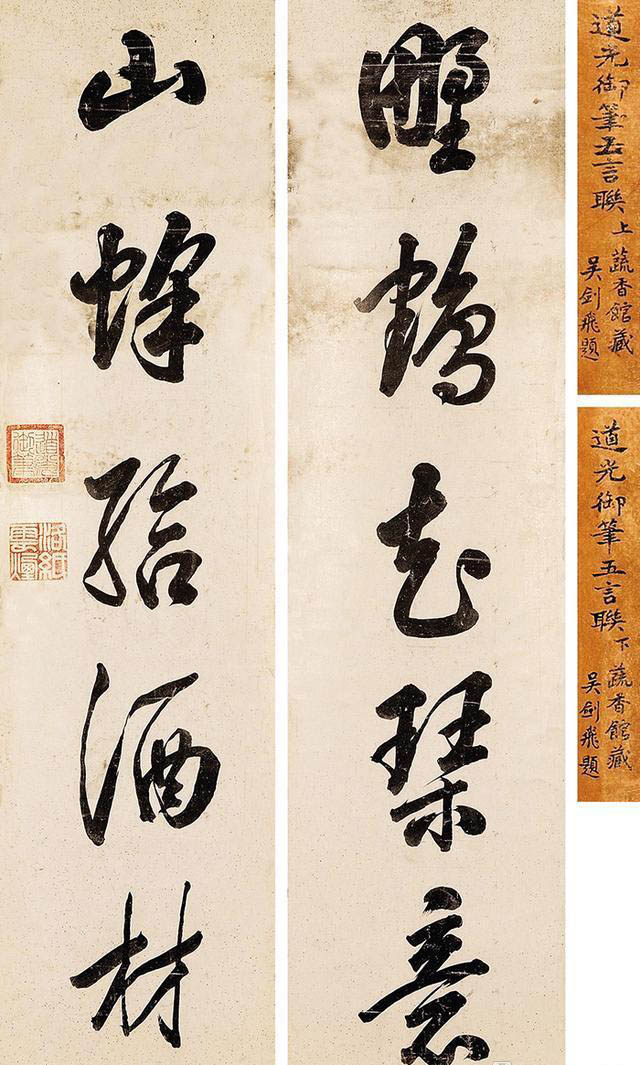 道光御筆五言聯上
蔬香館藏
吳劍飛題
道光御筆五言聯下
蔬香館藏
吳劍飛題
野鶴琴意
山蜂給酒材
道光御筆